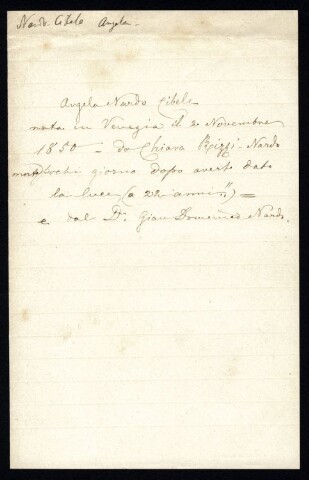 Nardo Cibele Angela -
Angela Nardo Cibele
nata in Venezia il 2 Novembre
1850 = da Chiara Nardo
morta giorno dopo averle dato
la luce (a 22 anni") =
e dal Dr. Gian Domenico Nardo.